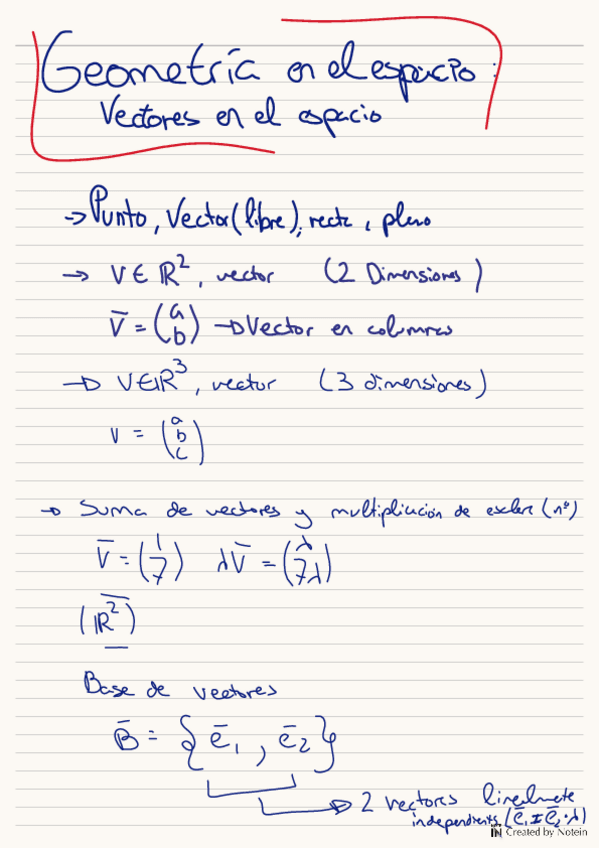 Geometría en el espacio:
Vectores en el espacio
→ Punto, Vector (libre), recta, plano
→ V ∈ ℝ², vector (2 Dimensiones)
V̄ = (a b) → Vector en columnas
→ V ∈ ℝ³, vector (3 dimensiones)
v = (a b c)
→ Suma de vectores y multiplicación de escalare (nº)
V̄ = (1 7) λV̄ = (λ 7λ)
(ℝ²)
Base de vectores
B̄ = {ē₁, ē₂}
→ 2 vectores linealmente
independients (ē₁ ≠ ē₂·λ)
Created by Notein